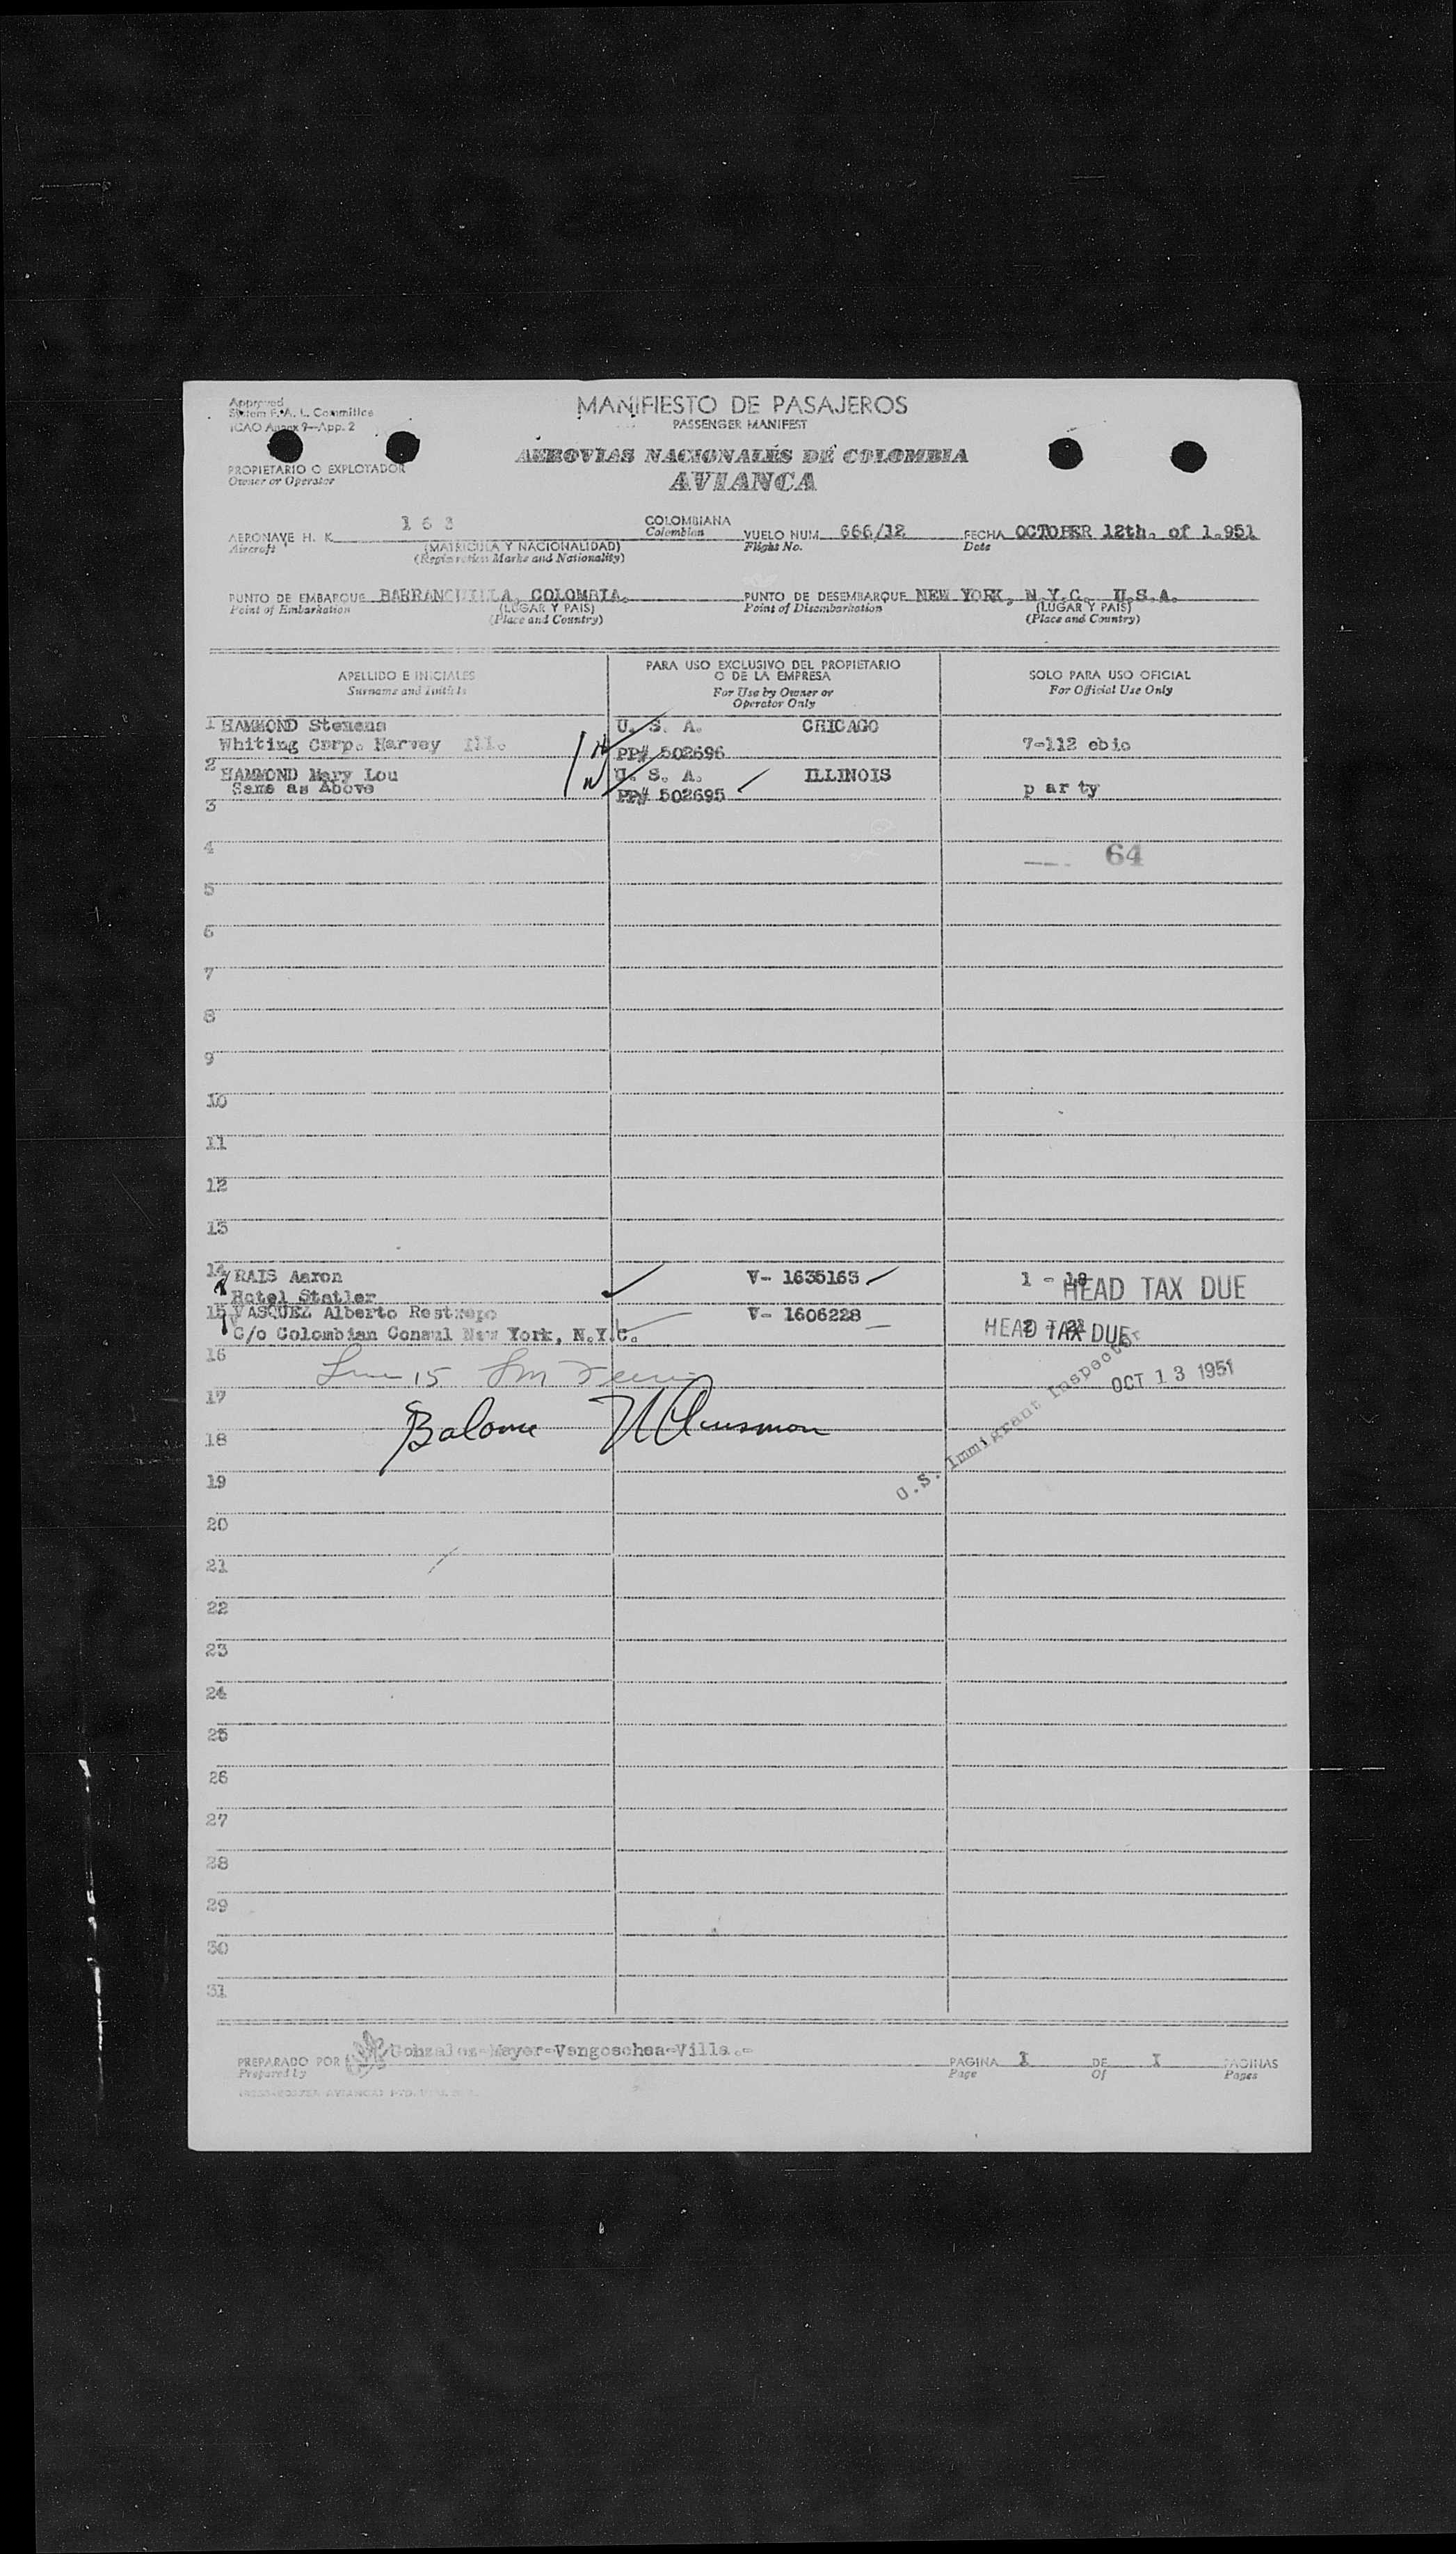 Approved
System F. A. L. Committee
ICAO Annex 9-App. 2
MANIFIESTO DE PASAJEROS
PASSENGER MANIFEST
AEROVIAS NACIONALES DE COLOMBIA
AVIANCA
PROPIETARIO O EXPLOTADOR
Owner or Operator
AERONAVE H. K. 163 COLOMBIANA VUELO NUM. 666/12 FECHA OCTOBER 12th. of 1.951
Aircraft (MATRICULA Y NACIONALIDAD) Colombian Flight No. Date
(Registration Marks and Nationality)
PUNTO DE EMBARQUE BARRANQUILLA, COLOMBIA. PUNTO DE DESEMBARQUE NEW YORK, N.Y.C. U.S.A.
Point of Embarkation (LUGAR Y PAIS) Point of Disembarkation (LUGAR Y PAIS)
(Place and Country) (Place and Country)
APELLIDO E INICIALES PARA USO EXCLUSIVO DEL PROPIETARIO O DE LA EMPRESA SOLO PARA USO OFICIAL
Surname and Initials For Use by Owner or Operator Only For Official Use Only
1 HAMMOND Stemens U. S. A. CHICAGO
Whiting Corp. Harvey Ill. PP# 502696 7-112 ebio
2 HAMMOND Mary Lou U. S. A. ILLINOIS
Same as Above PP# 502695 party
3
4 64
5
6
7
8
9
10
11
12
13
14 RAIS Aaron V- 1635163 1 - 18 HEAD TAX DUE
Hotel Statler
15 VASQUEZ Alberto Restrepo V- 1606228
C/o Colombian Consul New York, N.Y.C. HEAD TAX DUE
16
U.S. Immigrant Inspector
OCT 13 1951
17
18
19
20
21
22
23
24
25
26
27
28
29
30
31
PREPARADO POR Gonzalez-Mayer-Vengoechea-Villa.- PAGINA I DE I PAGINAS
Prepared by Page Of Pages